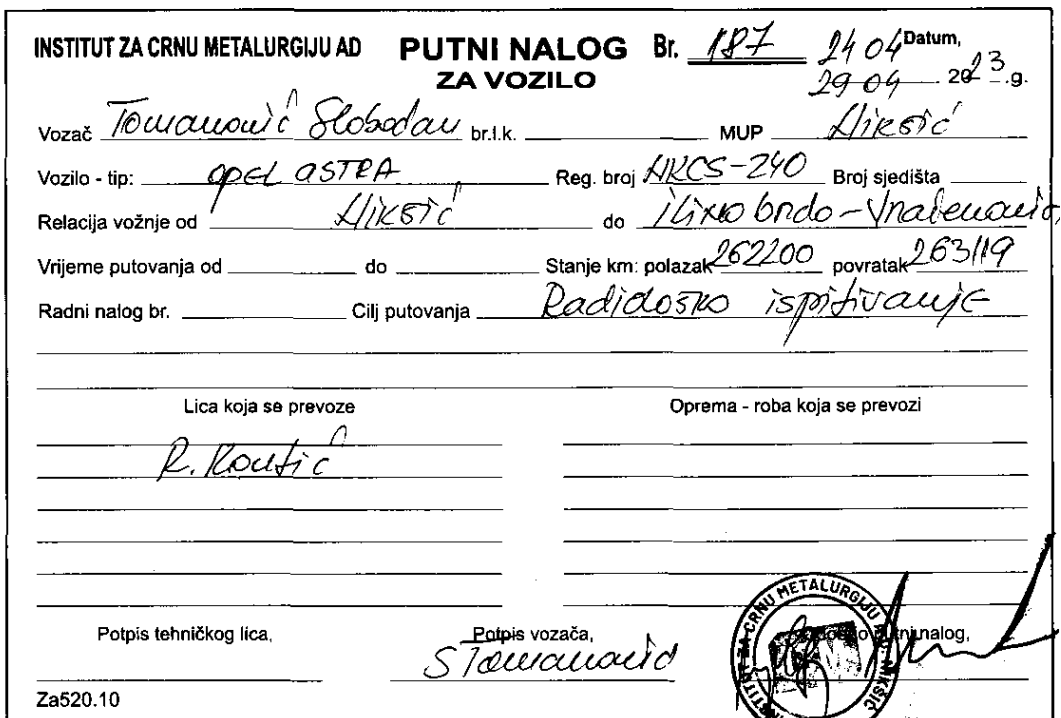 INSTITUT ZA CRNU METALURGIJU AD PUTNI NALOG Br. 187 24 04 Datum,
ZA VOZILO 29 04 2023.g.
Vozač Tomanović Slobodan br.l.k. MUP Nikšić
Vozilo - tip: OPEL ASTRA Reg. broj NKCS-240 Broj sjedišta
Relacija vožnje od Nikšić do Ilino brdo - Vraćenović
Vrijeme putovanja od do Stanje km: polazak 262200 povratak 263119
Radni nalog br. Cilj putovanja Radiološko ispitivanje
Lica koja se prevoze Oprema - roba koja se prevozi
R. Kontić
Potpis tehničkog lica, Potpis vozača, putni nalog,
S Tomanović
INSTITUT ZA CRNU METALURGIJU AD - NIKŠIĆ
Za520.10